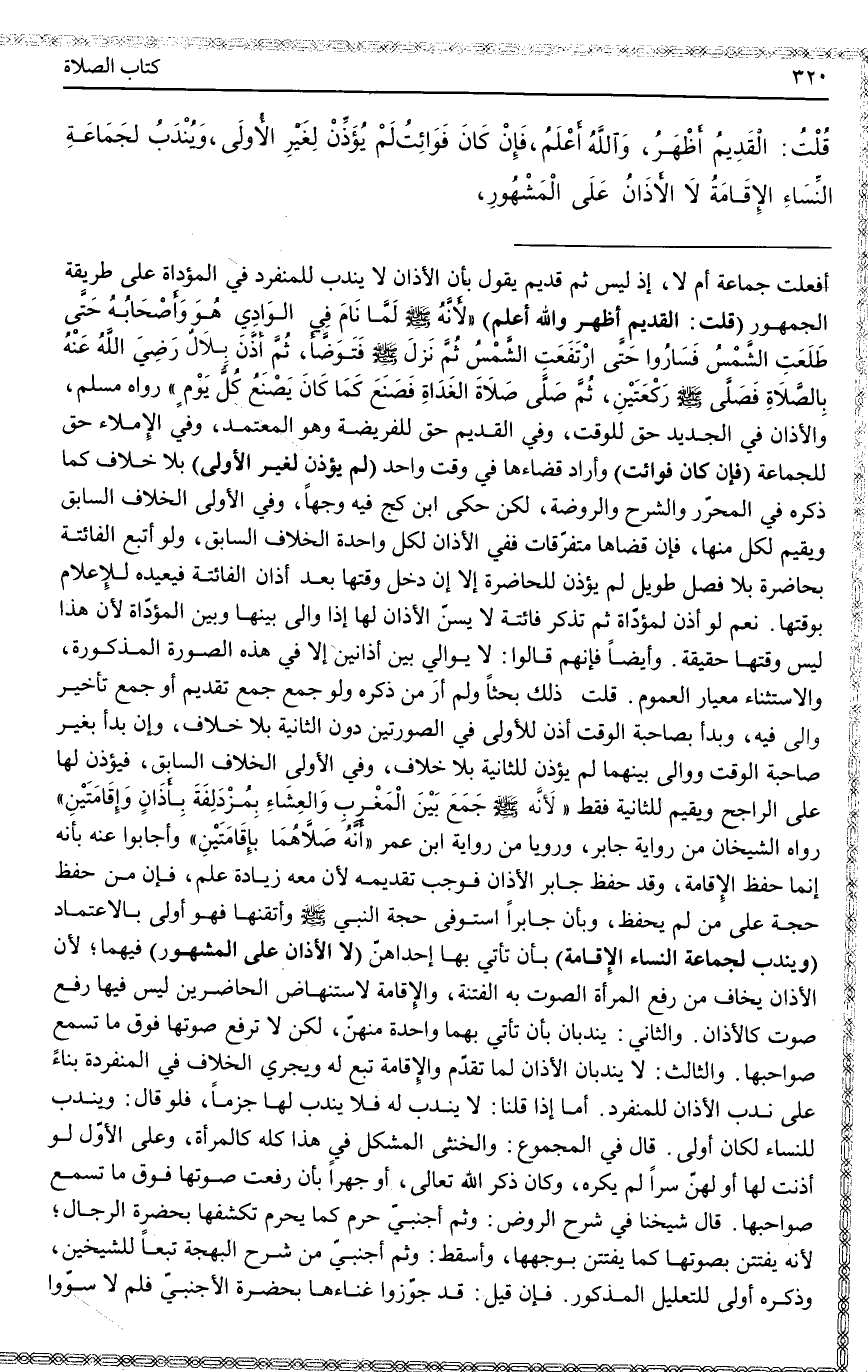 ٣٢٠ كتاب الصلاة
قُلْتُ: الْقَدِيمُ أَظْهَرُ، وَاللَّهُ أَعْلَمُ، فَإِنْ كَانَ فَوَائِتُ لَمْ يُؤَذِّنْ لِغَيْرِ الْأُولَى، وَيُنْدَبُ لِجَمَاعَةِ
النِّسَاءِ الإِقَامَةُ لَا الْأَذَانُ عَلَى الْمَشْهُورِ،
أفعلت جماعة أم لا، إذ ليس ثم قديم يقول بأن الأذان لا يندب للمنفرد في المؤداة على طريقة
الجمهور (قلت: القديم أظهر والله أعلم) «لأَنَّهُ ﷺ لَمَّا نَامَ فِي الوَادِي هُوَ وَأَصْحَابُهُ حَتَّى
طَلَعَتِ الشَّمْسُ فَسَارُوا حَتَّى ارْتَفَعَتِ الشَّمْسُ ثُمَّ نَزَلَ ﷺ فَتَوَضَّأَ، ثُمَّ أَذَّنَ بِلَالٌ رَضِيَ اللَّهُ عَنْهُ
بِالصَّلَاةِ فَصَلَّى ﷺ رَكْعَتَيْنِ، ثُمَّ صَلَّى صَلَاةَ الغَدَاةِ فَصَنَعَ كَمَا كَانَ يَصْنَعُ كُلَّ يَوْمٍ» رواه مسلم،
والأذان في الجديد حق للوقت، وفي القديم حق للفريضة وهو المعتمد، وفي الإملاء حق
للجماعة (فإن كان فوائت) وأراد قضاءها في وقت واحد (لم يؤذن لغير الأولى) بلا خلاف كما
ذكره في المحرّر والشرح والروضة، لكن حكى ابن كج فيه وجهاً، وفي الأولى الخلاف السابق
ويقيم لكل منها، فإن قضاها متفرّقات ففي الأذان لكل واحدة الخلاف السابق، ولو أتبع الفائتة
بحاضرة بلا فصل طويل لم يؤذن للحاضرة إلا إن دخل وقتها بعد أذان الفائتة فيعيده للإعلام
بوقتها. نعم لو أذن لمؤدّاة ثم تذكر فائتة لا يسنّ الأذان لها إذا والى بينها وبين المؤدّاة لأن هذا
ليس وقتها حقيقة. وأيضاً فإنهم قالوا: لا يوالي بين أذانين إلا في هذه الصورة المذكورة،
والاستثناء معيار العموم. قلت ذلك بحثاً ولم أرَ من ذكره ولو جمع جمع تقديم أو جمع تأخير
والى فيه، وبدأ بصاحبة الوقت أذن للأولى في الصورتين دون الثانية بلا خلاف، وإن بدأ بغير
صاحبة الوقت ووالى بينهما لم يؤذن للثانية بلا خلاف، وفي الأولى الخلاف السابق، فيؤذن لها
على الراجح ويقيم للثانية فقط «لأَنَّه ﷺ جَمَعَ بَيْنَ الْمَغْرِبِ وَالعِشَاءِ بِمُزْدَلِفَةَ بِأَذَانٍ وَإِقَامَتَيْنِ»
رواه الشيخان من رواية جابر، ورويا من رواية ابن عمر «أَنَّهُ صَلَّاهُمَا بِإِقَامَتَيْنِ» وأجابوا عنه بأنه
إنما حفظ الإقامة، وقد حفظ جابر الأذان فوجب تقديمه لأن معه زيادة علم، فإن من حفظ
حجة على من لم يحفظ، وبأن جابراً استوفى حجة النبي ﷺ وأتقنها فهو أولى بالاعتماد
(ويندب لجماعة النساء الإقامة) بأن تأتي بها إحداهنّ (لا الأذان على المشهور) فيهما؛ لأن
الأذان يخاف من رفع المرأة الصوت به الفتنة، والإقامة لاستنهاض الحاضرين ليس فيها رفع
صوت كالأذان. والثاني: يندبان بأن تأتي بهما واحدة منهنّ، لكن لا ترفع صوتها فوق ما تسمع
صواحبها. والثالث: لا يندبان الأذان لما تقدّم والإقامة تبع له ويجري الخلاف في المنفردة بناءً
على ندب الأذان للمنفرد. أما إذا قلنا: لا يندب له فلا يندب لها جزماً، فلو قال: ويندب
للنساء لكان أولى. قال في المجموع: والخنثى المشكل في هذا كله كالمرأة، وعلى الأوّل لو
أذنت لها أو لهنّ سراً لم يكره، وكان ذكر الله تعالى، أو جهراً بأن رفعت صوتها فوق ما تسمع
صواحبها. قال شيخنا في شرح الروض: وثم أجنبيّ حرم كما يحرم تكشفها بحضرة الرجال؛
لأنه يفتتن بصوتها كما يفتتن بوجهها، وأسقط: وثم أجنبيّ من شرح البهجة تبعاً للشيخين،
وذكره أولى للتعليل المذكور. فإن قيل: قد جوّزوا غناءها بحضرة الأجنبيّ فلم لا سوّوا